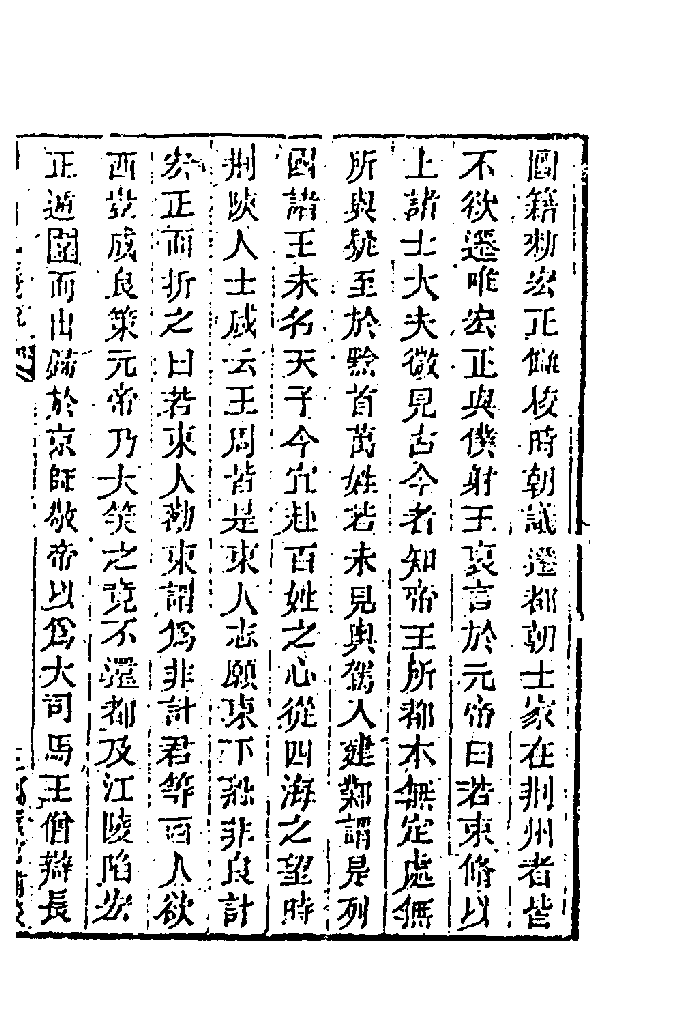 圖籍勅宏正讎校時朝議遷都朝士家在荆州者皆
不欲遷唯宏正與僕射王裒言於元帝曰若束脩以
上諸士大夫微見古今者知帝王所都本無定處無
所與疑至於黔首萬姓若未見輿駕入建鄴謂是列
國諸王未名天子今宜赴百姓之心從四海之望時
荆陝人士咸云王周皆是東人志願東下恐非良計
宏正面折之曰若東人勸東謂爲非計君等西人欲
西豈成良策元帝乃大笑之竟不還都及江陵陷宏
正遁圍而出歸於京師敬帝以爲大司馬王僧辯長